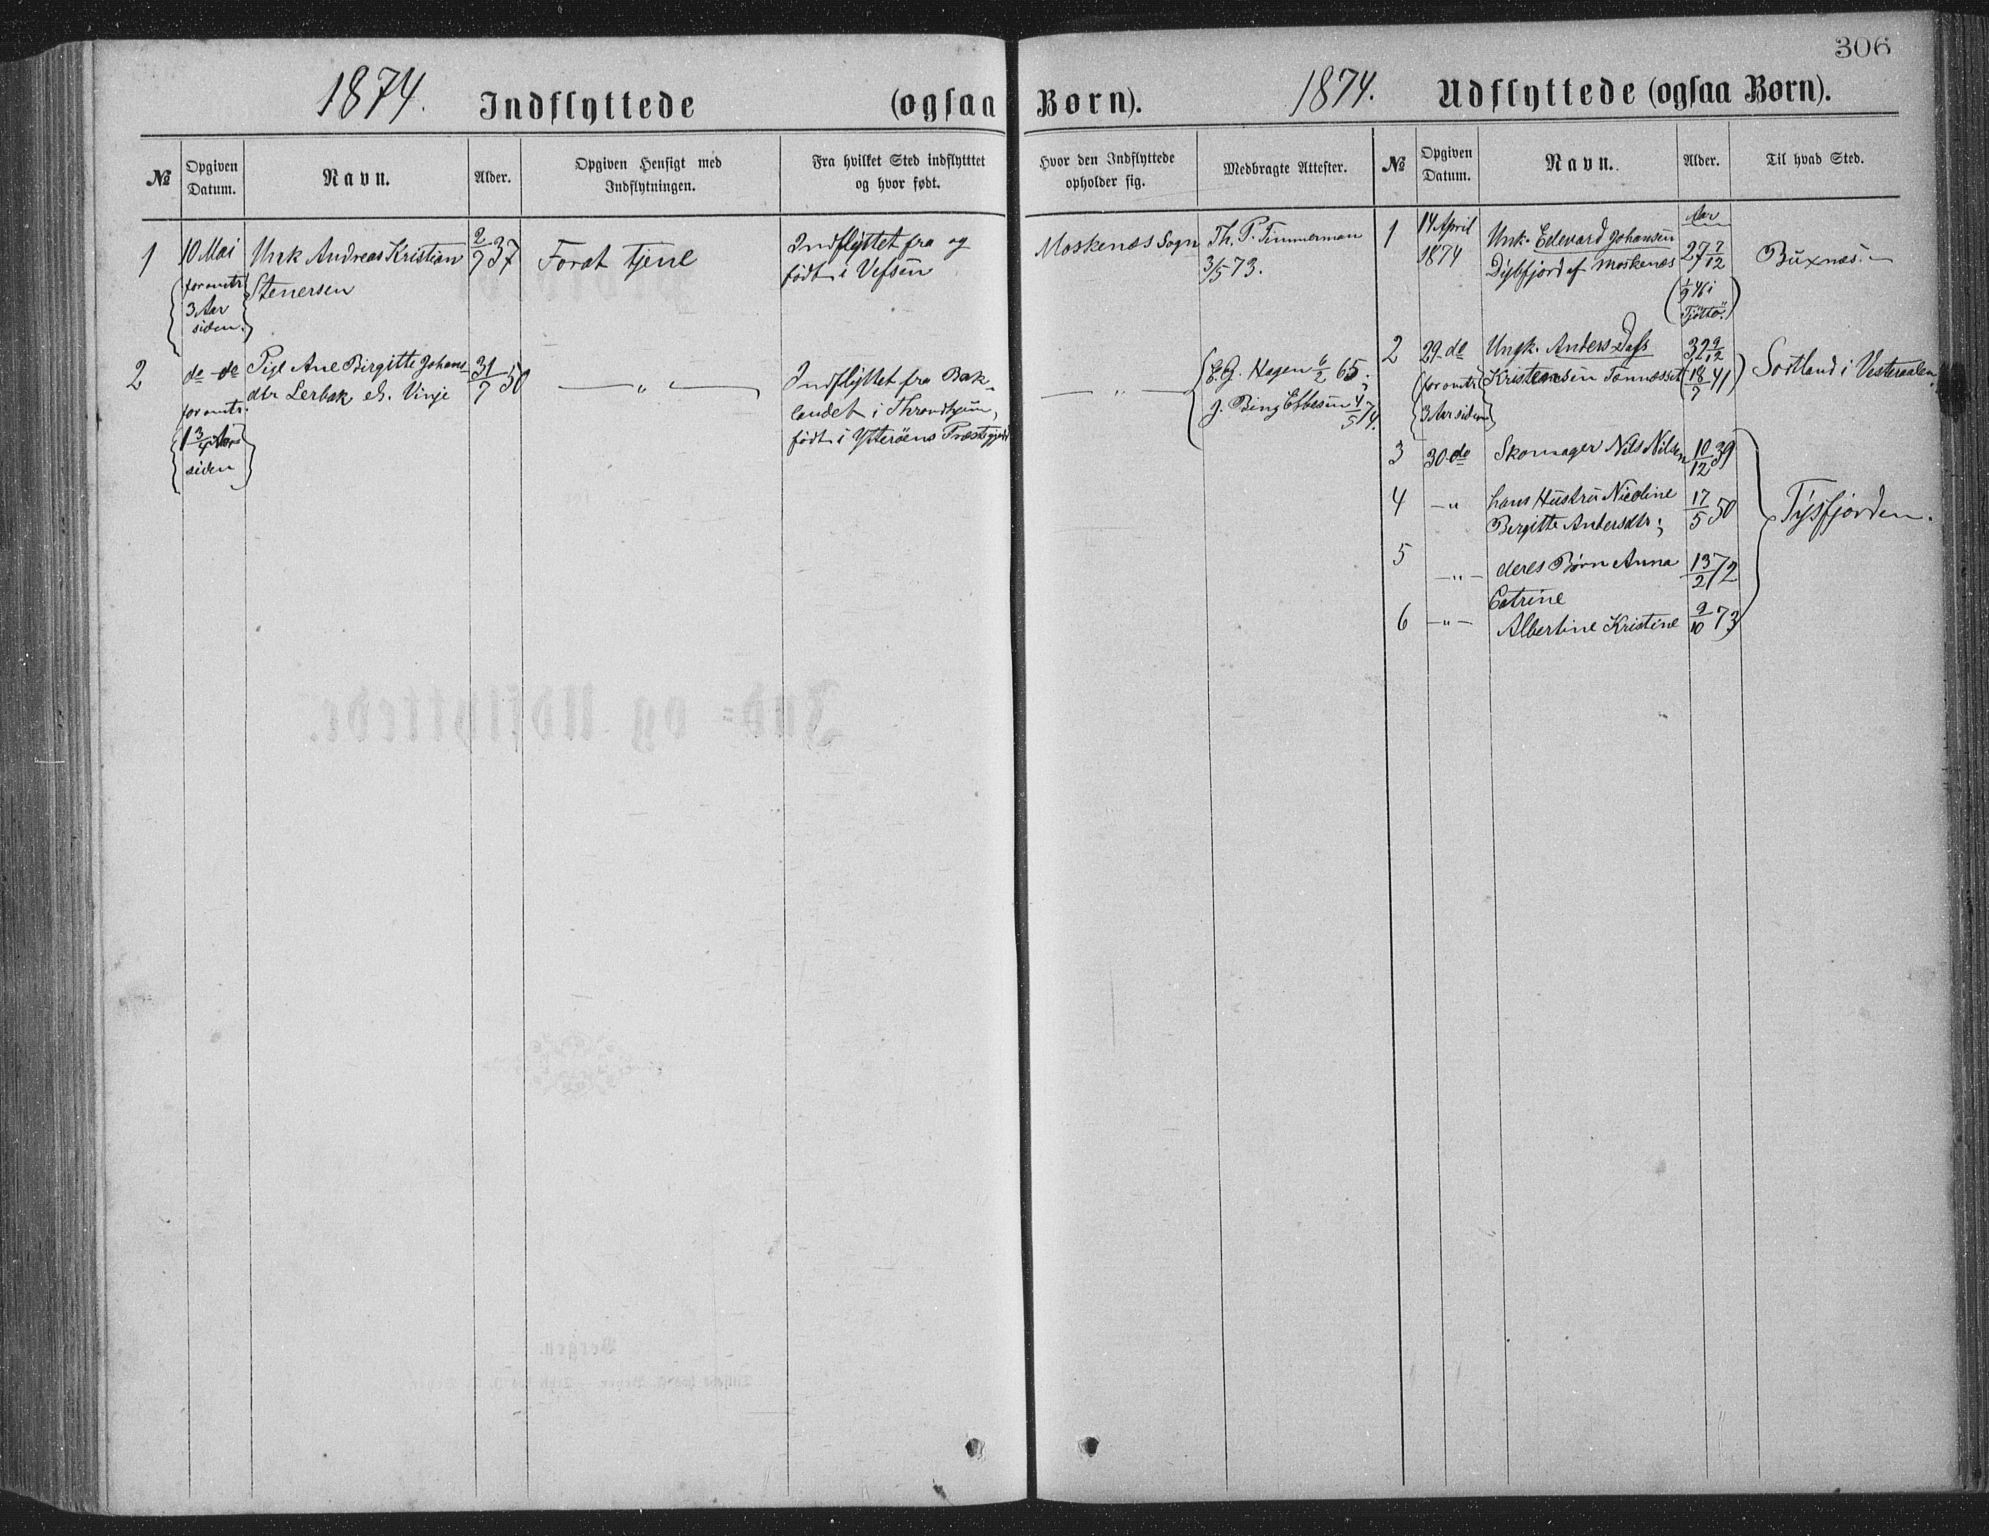 306
1874. Indflyttede (ogsaa Børn).
1874. Udflyttede (ogsaa Børn).
№
Opgiven
Datum.
Navn.
Alder.
Opgiven Hensigt med
Indflytningen.
Fra hvilket Sted indflytttet
og hvor født.
Hvor den Indflyttede
opholder sig.
Medbragte Attester.
№
Opgiven
Datum.
Navn.
Alder.
Til hvad Sted.
1
10 Mai
for omtr
3 Aar
siden.
Unk Andreas Kristian
Stenersen
2/7 37
For at tjene
Indflyttet fra og
født i Vefsen
Moskenæs Sogn
Th. P. Timmerman
3/5 73.
2
do do
for omtr.
1 3/4 Aar
siden
Pige Ane Birgitte Johans
dtr Lerbak e. Vinje
31/7 50
— „ —
Indflyttet fra Bak-
landet i Throndhjem,
født i Ytterøens Præstegjeld
— „ —
E.G. Hagen 6/2 65;
J. Bing Ebbesen 4/5 74.
1
14 April
1874
Unk. Edevard Johansen
Dybfjord af Moskenæs
Aar
27 7/12
(1/9 46 i
Tjøttø.)
Buxnæs.
2
29 do
(for omtr
3 Aar siden)
Ungk. Anders Dass
Kristensen Tønnesset
32 9/12
(18/7 41)
Sortland i Vesteraalen.
3
30 do
Skomager Nils Nilsen
10/12 39
4
— „
hans Hustru Nicoline
Bergitte Andersdtr;
17/5 50
Tysfjorden.
5
— „ —
deres Børn Anna
Catrine
13/2 72
6
— „ —
Albertine Kristine
9/10 73